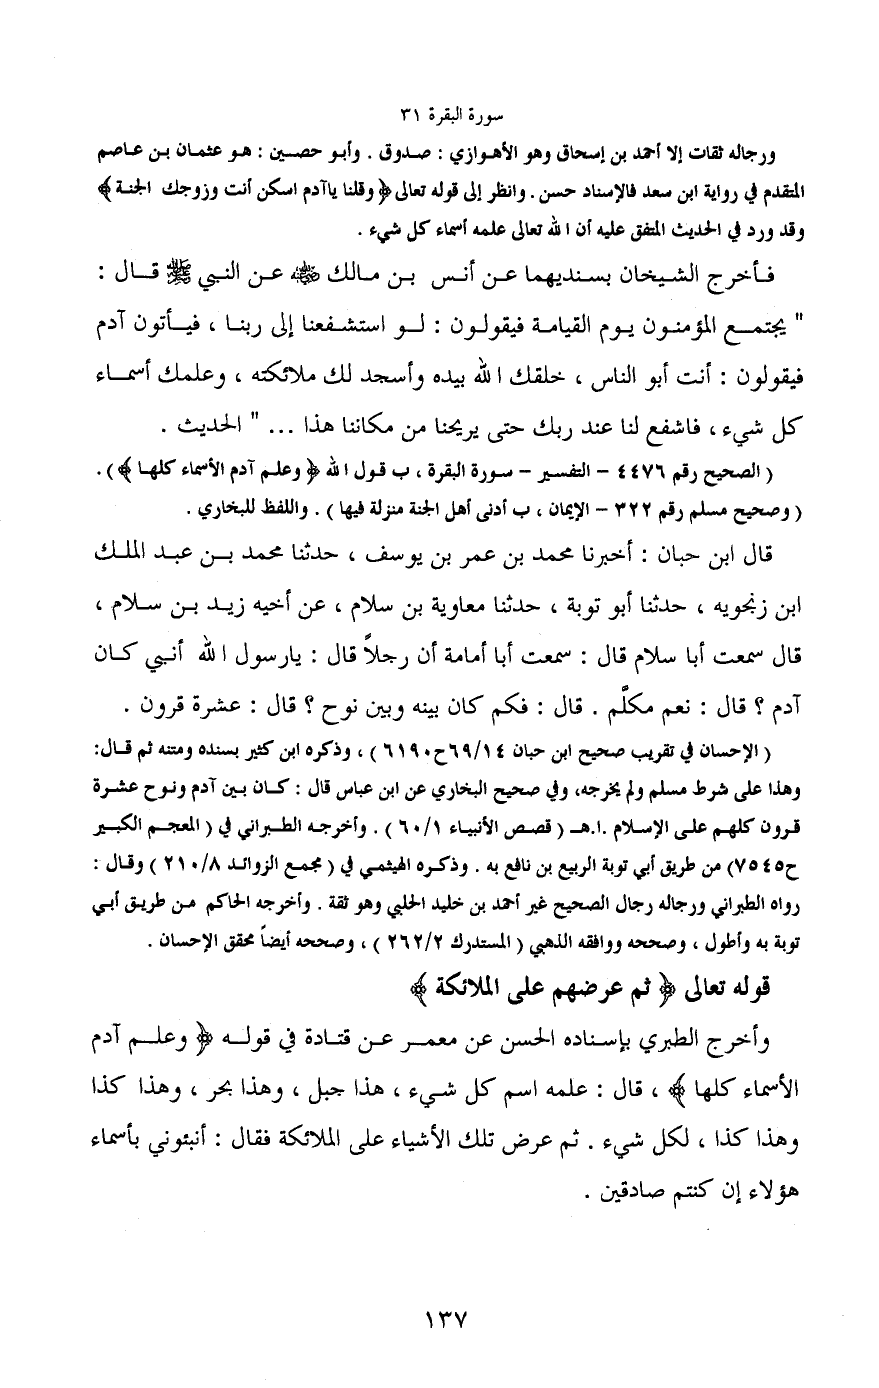 سورة البقرة ٣١
ورجاله ثقات إلا أحمد بن إسحاق وهو الأهوازي : صدوق . وأبو حصين : هو عثمان بن عاصم
المتقدم في رواية ابن سعد فالإسناد حسن . وانظر إلى قوله تعالى ﴿ وقلنا ياآدم اسكن أنت وزوجك الجنة ﴾
وقد ورد في الحديث المتفق عليه أن الله تعالى علمه أسماء كل شيء .
فأخرج الشيخان بسنديهما عن أنس بن مالك ﷺ عن النبي ﷺ قال :
" يجتمع المؤمنون يوم القيامة فيقولون : لو استشفعنا إلى ربنا ، فيأتون آدم
فيقولون : أنت أبو الناس ، خلقك الله بيده وأسجد لك ملائكته ، وعلمك أسماء
كل شيء ، فاشفع لنا عند ربك حتى يريحنا من مكاننا هذا ... " الحديث .
( الصحيح رقم ٤٤٧٦ - التفسير - سورة البقرة ، ب قول الله ﴿ وعلم آدم الأسماء كلها ﴾ ) .
( وصحيح مسلم رقم ٣٢٢ - الإيمان ، ب أدنى أهل الجنة منزلة فيها ) . واللفظ للبخاري .
قال ابن حبان : أخبرنا محمد بن عمر بن يوسف ، حدثنا محمد بن عبد الملك
ابن زنجويه ، حدثنا أبو توبة ، حدثنا معاوية بن سلام ، عن أخيه زيد بن سلام ،
قال سمعت أبا سلام قال : سمعت أبا أمامة أن رجلاً قال : يارسول الله أنبي كان
آدم ؟ قال : نعم مكلَّم . قال : فكم كان بينه وبين نوح ؟ قال : عشرة قرون .
( الإحسان في تقريب صحيح ابن حبان ٦٩/١٤ح٦١٩٠ ) ، وذكره ابن كثير بسنده ومتنه ثم قال:
وهذا على شرط مسلم ولم يخرجه، وفي صحيح البخاري عن ابن عباس قال : كان بين آدم ونوح عشرة
قرون كلهم على الإسلام .ا.هـ ( قصص الأنبياء ٦٠/١ ) . وأخرجه الطبراني في ( المعجم الكبير
ح٧٥٤٥) من طريق أبي توبة الربيع بن نافع به . وذكره الهيثمي في ( مجمع الزوائد ٢١٠/٨ ) وقال :
رواه الطبراني ورجاله رجال الصحيح غير أحمد بن خليد الحلبي وهو ثقة . وأخرجه الحاكم من طريق أبي
توبة به وأطول ، وصححه ووافقه الذهبي ( المستدرك ٢٦٢/٢ ) ، وصححه أيضاً محقق الإحسان .
قوله تعالى ﴿ ثم عرضهم على الملائكة ﴾
وأخرج الطبري بإسناده الحسن عن معمر عن قتادة في قوله ﴿ وعلم آدم
الأسماء كلها ﴾ ، قال : علمه اسم كل شيء ، هذا جبل ، وهذا بحر ، وهذا كذا
وهذا كذا ، لكل شيء . ثم عرض تلك الأشياء على الملائكة فقال : أنبئوني بأسماء
هؤلاء إن كنتم صادقين .
١٣٧